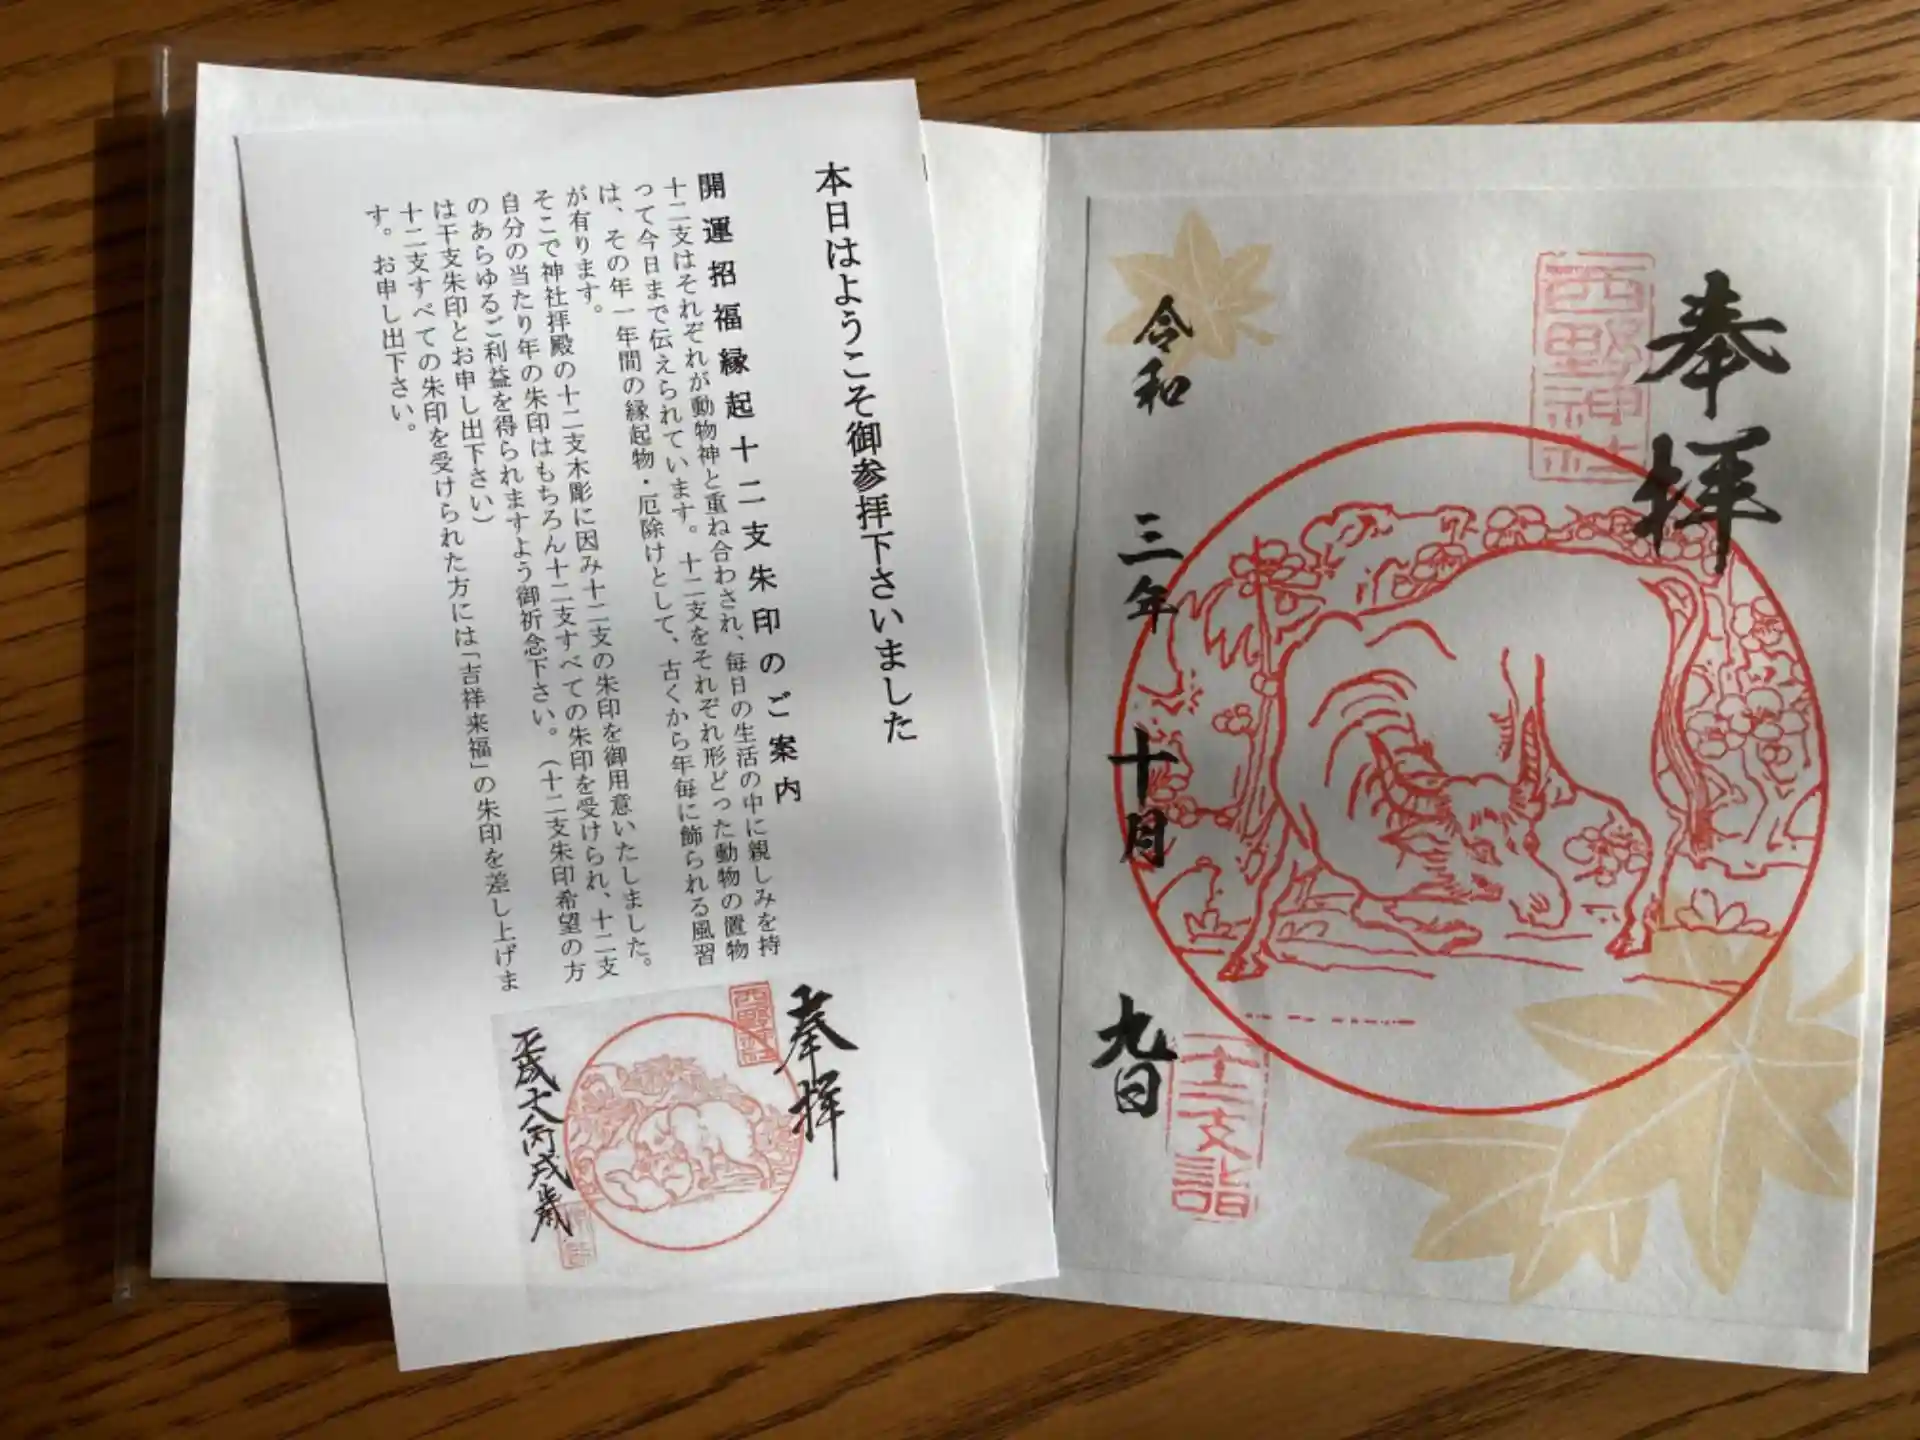 奉拝
西野神社
令和三年十月九日
十二支詣
本日はようこそ御参拝下さいました
開運招福縁起十二支朱印のご案内
十二支はそれぞれが動物神と重ね合わされ、毎日の生活の中に親しみを持
って今日まで伝えられています。十二支をそれぞれ形どった動物の置物
は、その年一年間の縁起物・厄除けとして、古くから年毎に飾られる風習
が有ります。
そこで神社拝殿の十二支木彫に因み十二支の朱印を御用意いたしました。
自分の当たり年の朱印はもちろん十二支すべての朱印を受けられ、十二支
のあらゆるご利益を得られますよう御祈念下さい。（十二支朱印希望の方
は干支朱印とお申し出下さい）
十二支すべての朱印を受けられた方には「吉祥来福」の朱印を差し上げま
す。お申し出下さい。
奉拝
西野神社
平成十八丙戌歳